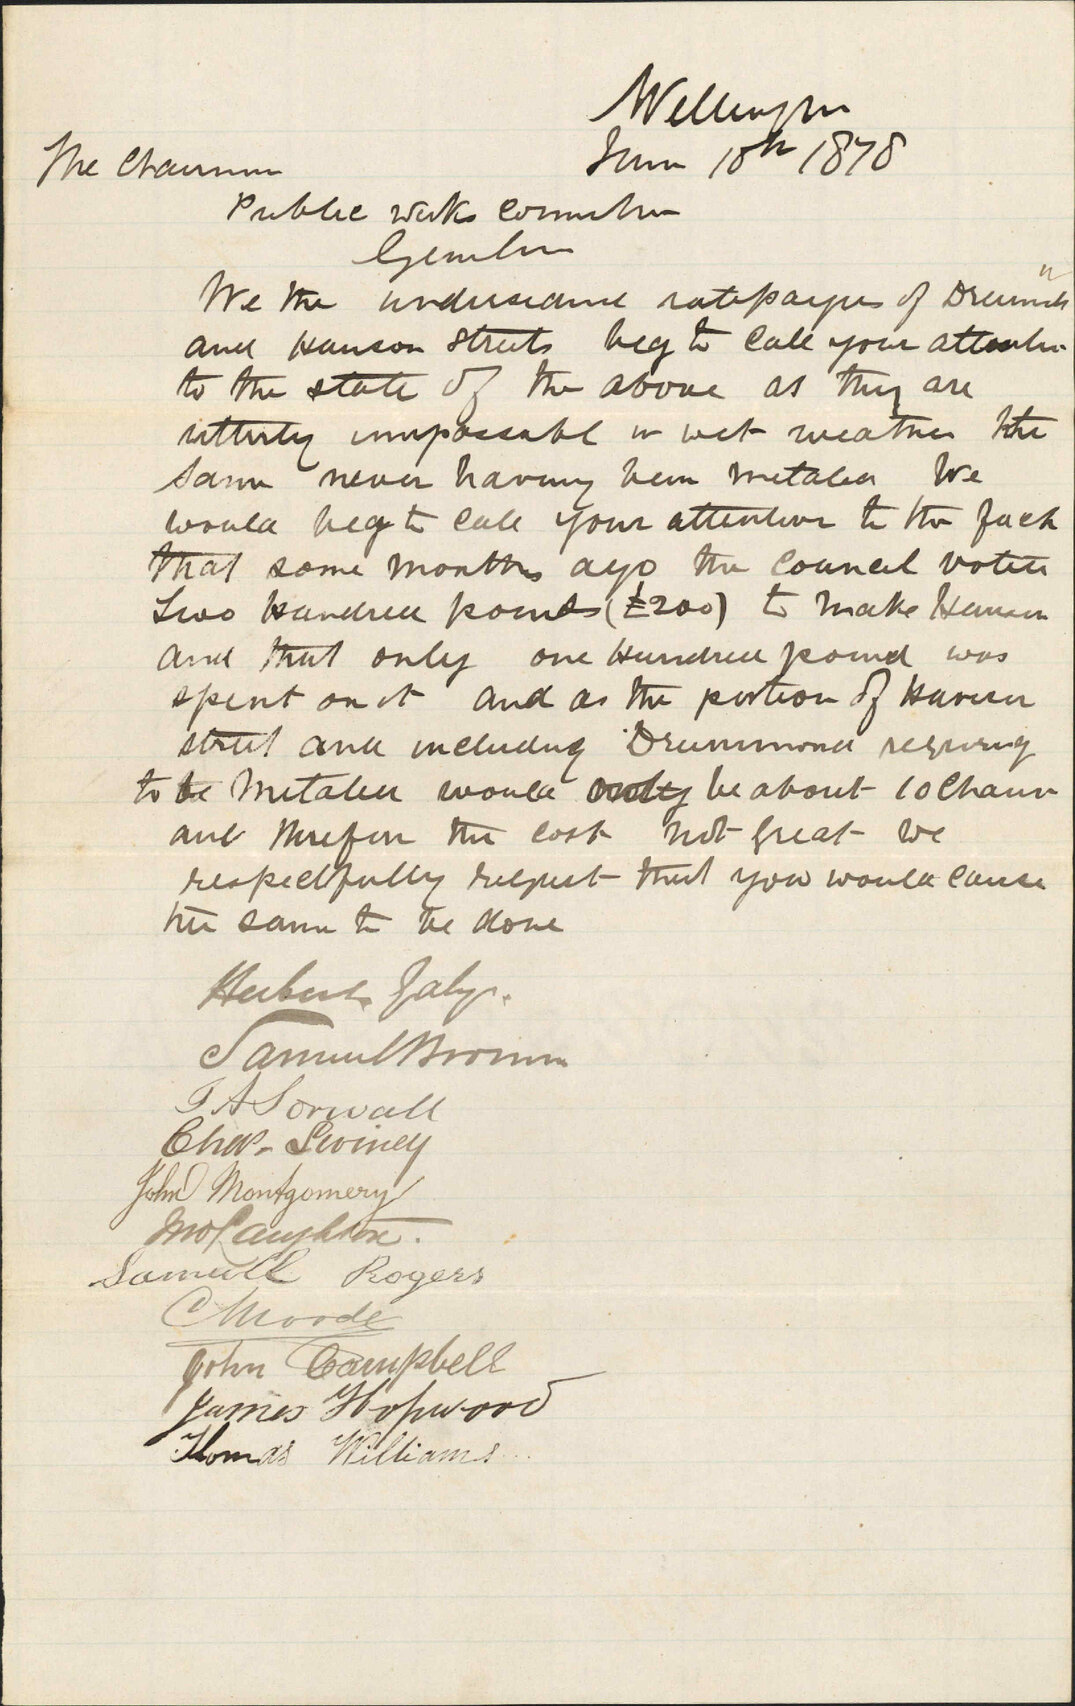 Wellington
June 10th 1878
The Chairman
Public works Committee
Gentlemen
We the undersigned ratepayers of Drummond
and Hanson Streets beg to call your attention
to the state of the above as they are
utterly impassable in wet weather the
same never having been metaled We
would beg to call your attention to the fact
that some months ago the Council voted
Two Hundred pounds (£200) to make Hanson
and that only one Hundred pound was
spent on it and as the portion of Hanson
street and including Drummond requiring
to be Metaled would only be about 10 Chains
and therefore the cost not great we
respectfully request that you would cause
the same to be done
Herbert
Samuel Brown
Chas. Swiney
John Montgomery
Samuell Rogers
John Campbell
James Hopwood
Thomas Williams